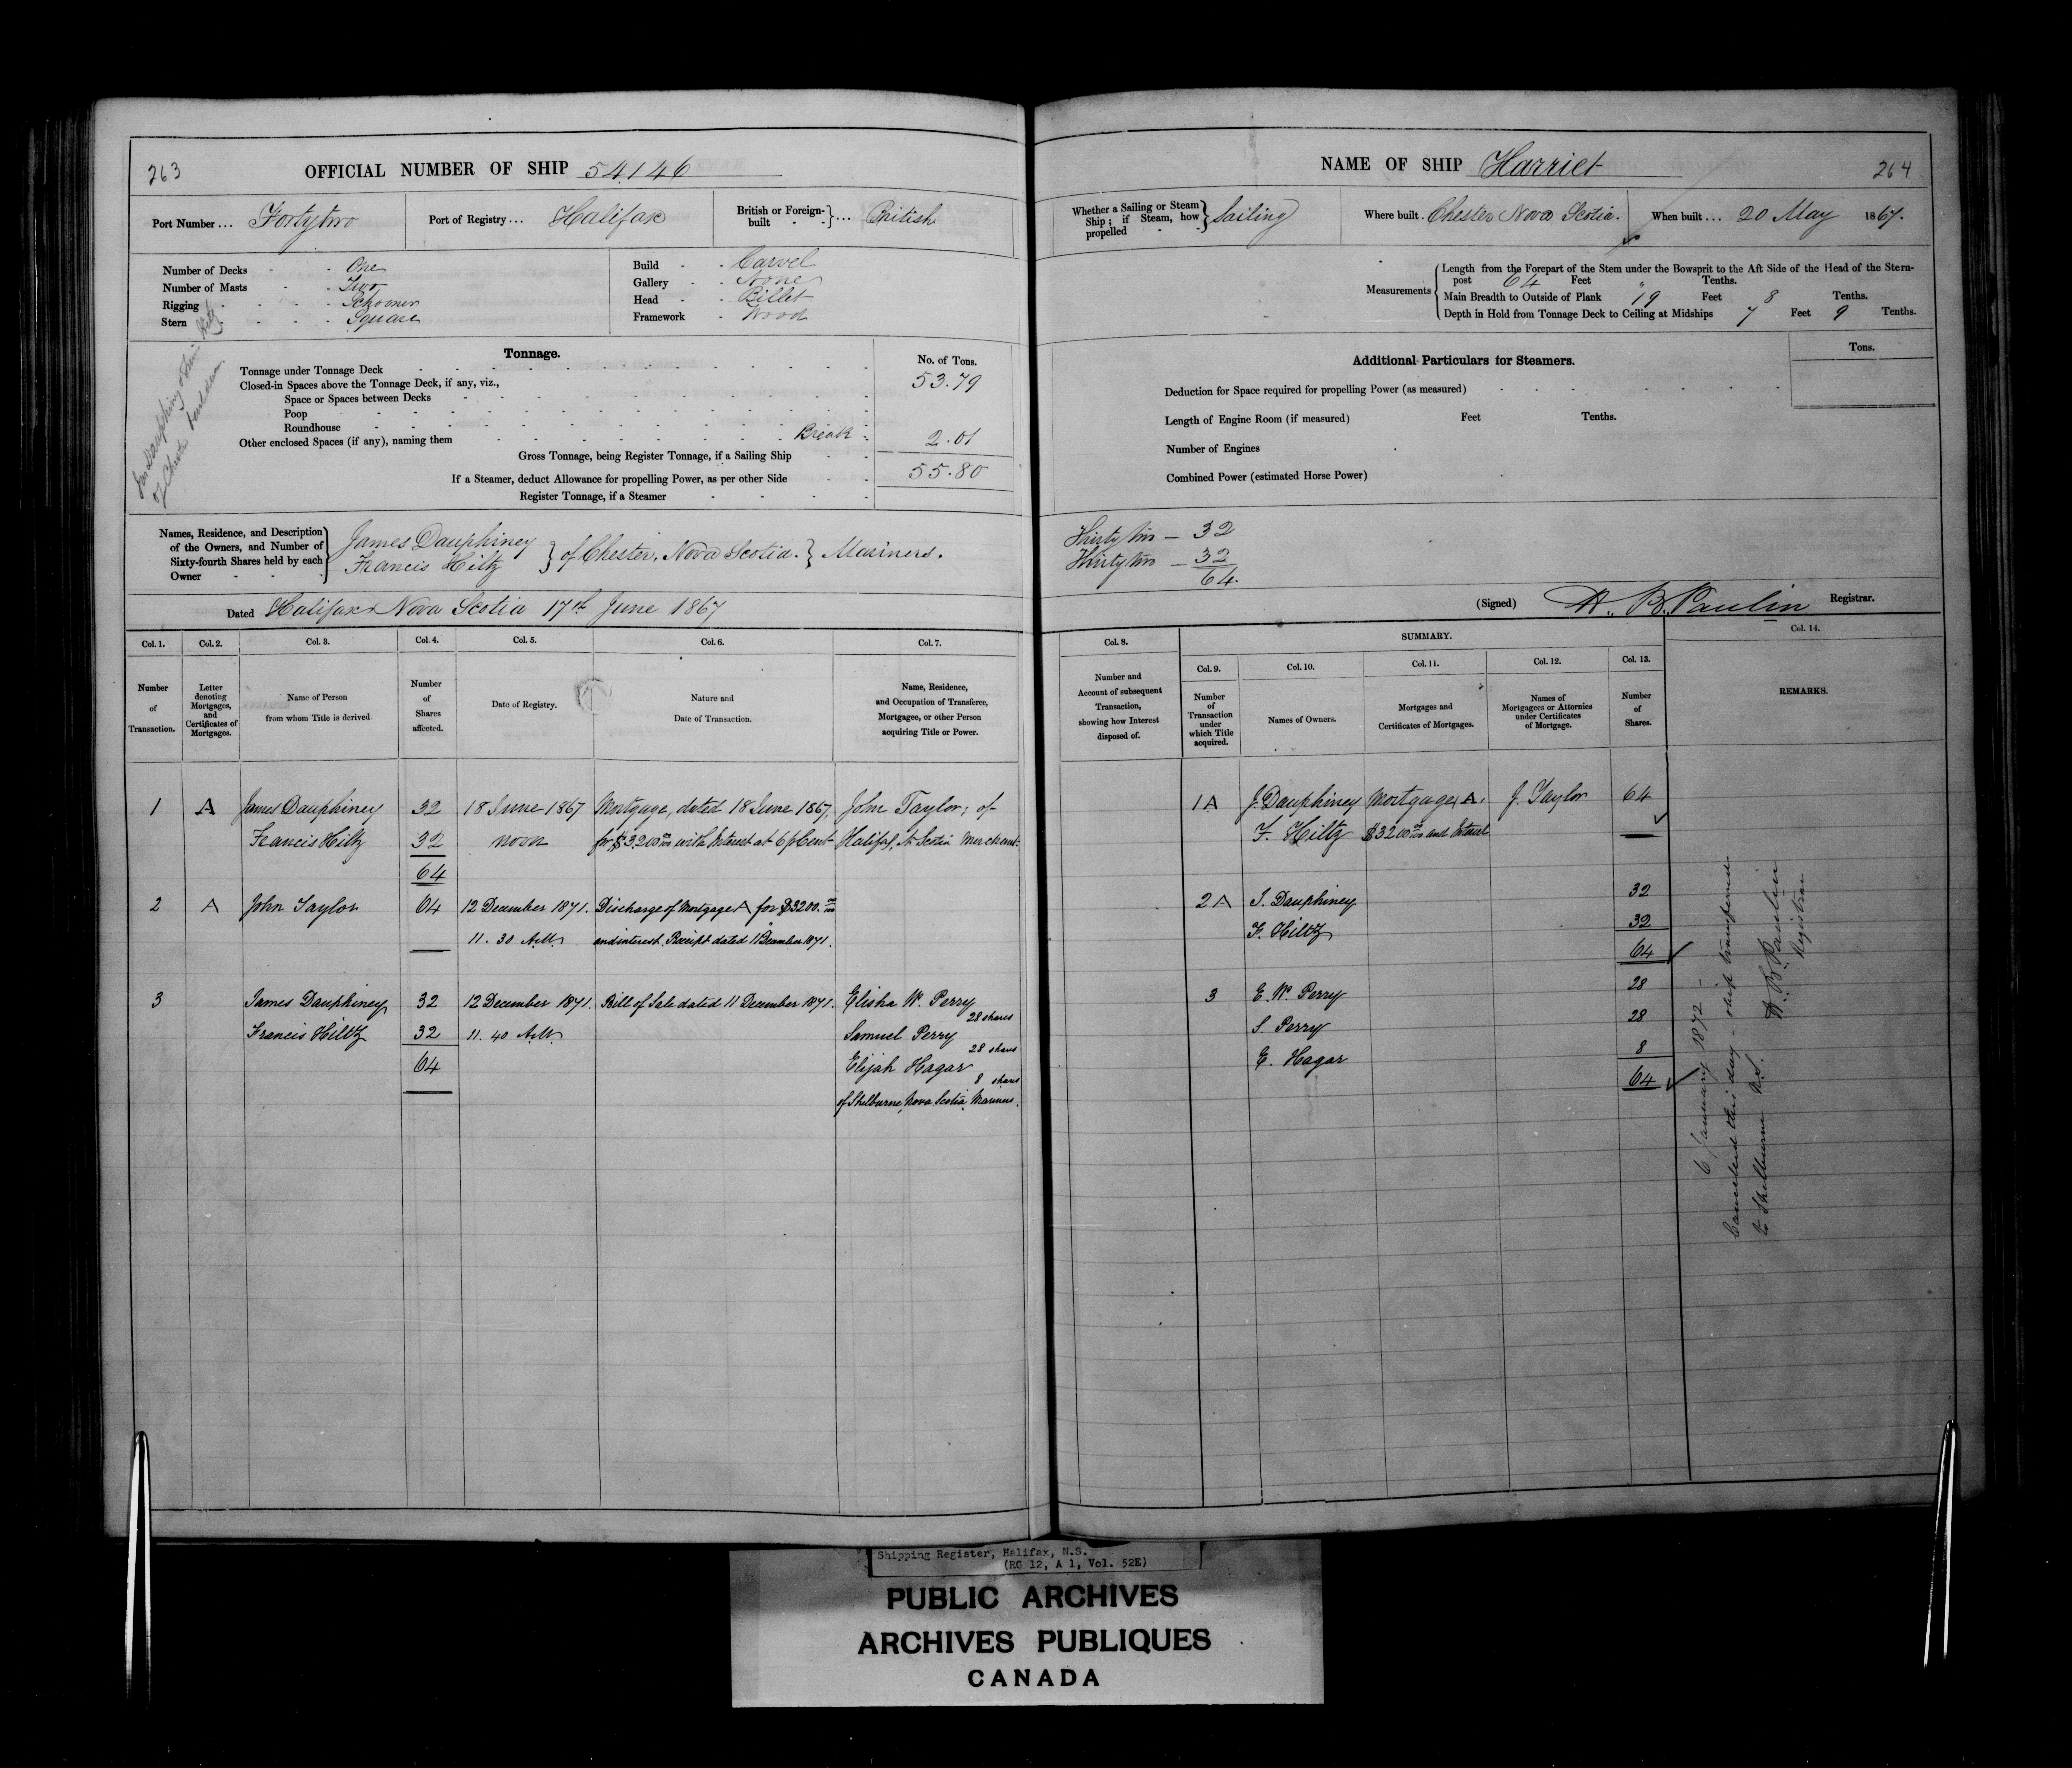 263
OFFICIAL NUMBER OF SHIP 54146
Port Number... Fortytwo
Port of Registry... Halifax
British or Foreign-built } ... British
Number of Decks - - One
Number of Masts - - Two
Rigging - - - - Schooner
Stern - - - - Square
Build - - Carvel
Gallery - - None
Head - - Billet
Framework - Wood
Tonnage.
No. of Tons.
Tonnage under Tonnage Deck
53.79
Closed-in Spaces above the Tonnage Deck, if any, viz.,
Space or Spaces between Decks
Poop
Roundhouse
Other enclosed Spaces (if any), naming them - Break - 2.01
Gross Tonnage, being Register Tonnage, if a Sailing Ship
55.80
If a Steamer, deduct Allowance for propelling Power, as per other Side
Register Tonnage, if a Steamer
Jas Dauphiney
of Chester
Names, Residence, and Description of the Owners, and Number of Sixty-fourth Shares held by each Owner
James Dauphiney
Francis Hiltz } of Chester, Nova Scotia. } Mariners.
Dated Halifax Nova Scotia 17th June 1867
Col. 1. Col. 2. Col. 3. Col. 4. Col. 5. Col. 6. Col. 7.
Number of Transaction.
Letter denoting Mortgages, and Certificates of Mortgages.
Name of Person from whom Title is derived
Number of Shares affected.
Date of Registry.
Nature and Date of Transaction.
Name, Residence, and Occupation of Transferee, Mortgagee, or other Person acquiring Title or Power.
1 A James Dauphiney 32 18 June 1867 Mortgage, dated 18 June 1867, John Taylor, of
Francis Hiltz 32 noon for $3200 with Interest at 6 p Cent Halifax, N. Scotia Merchant.
64
2 A John Taylor 64 12 December 1871. Discharge of Mortgage A for $3200.
11.30 A.M. and interest. Receipt dated 11 December 1871.
3 James Dauphiney 32 12 December 1871. Bill of Sale dated 11 December 1871. Elisha W. Perry
28 shares
Francis Hiltz 32 11.40 A.M. Samuel Perry
28 shares
64 Elijah Hagar
8 shares
of Shelburne, Nova Scotia, Mariners.
NAME OF SHIP Harriet
264
Whether a Sailing or Steam Ship; if Steam, how propelled } Sailing
Where built. Chester Nova Scotia.
When built... 20 May 1867.
Measurements
Length from the Forepart of the Stem under the Bowsprit to the Aft Side of the Head of the Stern-
post 64 Feet " Tenths.
Main Breadth to Outside of Plank 19 Feet 8 Tenths.
Depth in Hold from Tonnage Deck to Ceiling at Midships 7 Feet 9 Tenths.
Additional Particulars for Steamers.
Tons.
Deduction for Space required for propelling Power (as measured)
Length of Engine Room (if measured) Feet Tenths.
Number of Engines
Combined Power (estimated Horse Power)
Thirty two — 32
Thirty two — 32
64.
(Signed) H. B. Paulin Registrar.
Col. 8. SUMMARY. Col. 14.
Col. 9. Col. 10. Col. 11. Col. 12. Col. 13.
Number and Account of subsequent Transaction, showing how Interest disposed of.
Number of Transaction under which Title acquired.
Names of Owners.
Mortgages and Certificates of Mortgages.
Names of Mortgagees or Attornies under Certificates of Mortgage.
Number of Shares.
REMARKS.
1 A J. Dauphiney Mortgage, A. J. Taylor 64
F. Hiltz $3200 and Interest
2 A J. Dauphiney 32
F. Hiltz 32
64
3 E. W. Perry 28
S. Perry 28
E. Hagar 8
64
6 January 1872 -
Cancelled this day - ship transferred
to Shelburne N.S.
H. B. Paulin
Registrar
Shipping Register, Halifax, N.S.
(RG 12, A 1, Vol. 52E)
PUBLIC ARCHIVES
ARCHIVES PUBLIQUES
CANADA